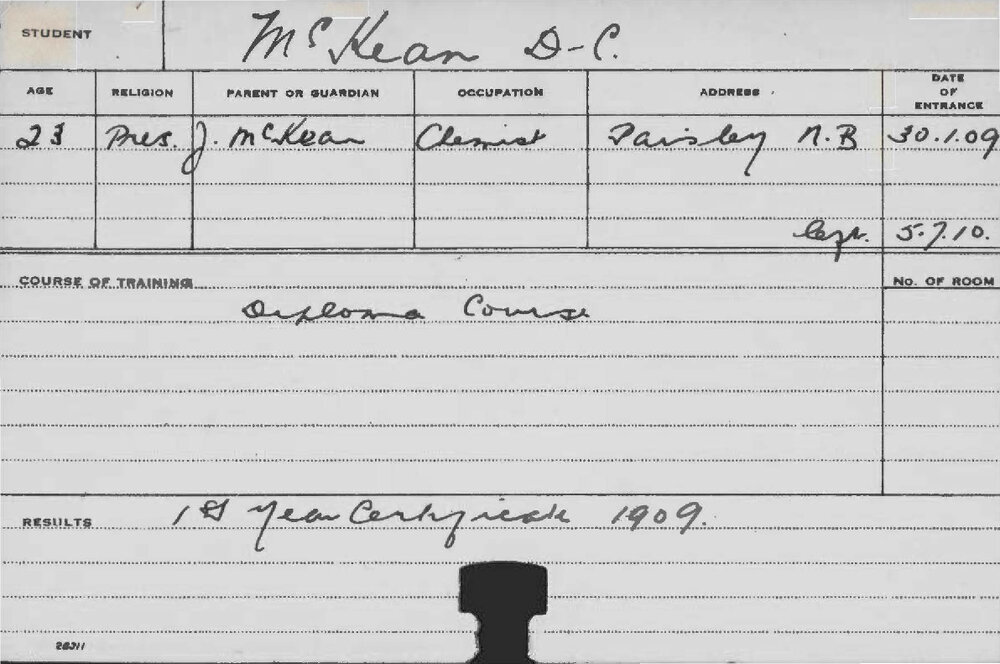 STUDENT McKean D-C.
AGE RELIGION PARENT OR GUARDIAN OCCUPATION ADDRESS DATE OF ENTRANCE
23 Pres. J. McKean Chemist Paisley N.B 30.1.09
5.7.10.
COURSE OF TRAINING No. OF ROOM
Diploma Course
RESULTS 1st Year Certificate 1909.